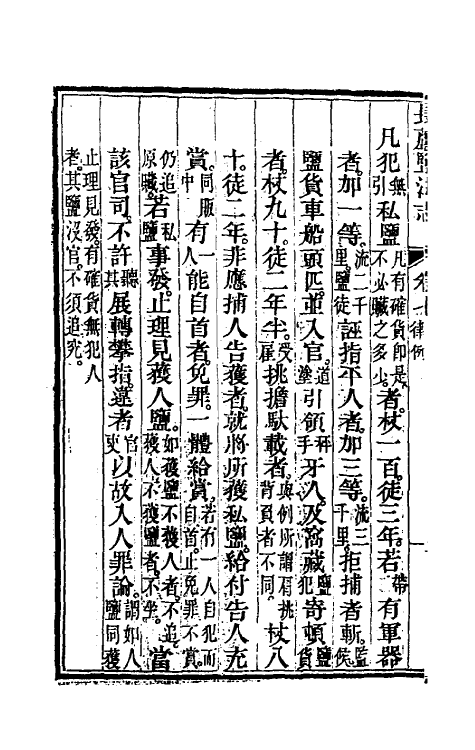 長蘆鹽法志 卷十 律例
凡犯無引私鹽凡有確貨即是不必贓之多少者杖一百徒三年若帶有軍器
者加一等流二千里鹽徒誣指平人者加三等流三千里拒捕者斬監候
鹽貨車船頭匹並入官道塗引領秤手牙人及窩藏鹽犯寄頓鹽貨
者杖九十徒二年半受雇挑擔馱載者與例所謂肩挑背負者不同杖八
十徒二年非應捕人告獲者就將所獲私鹽給付告人充
賞同販中有一人能自首者免罪一體給賞若有一人自犯而自首止免罪不賞
仍追原贓若私鹽事發止理見獲人鹽如獲鹽不獲人者不追獲人不獲鹽者不坐當
該官司不許聽其展轉攀指違者官吏以故入人罪論謂如人鹽同獲
止理見發有確貨無犯人者其鹽沒官不須追究